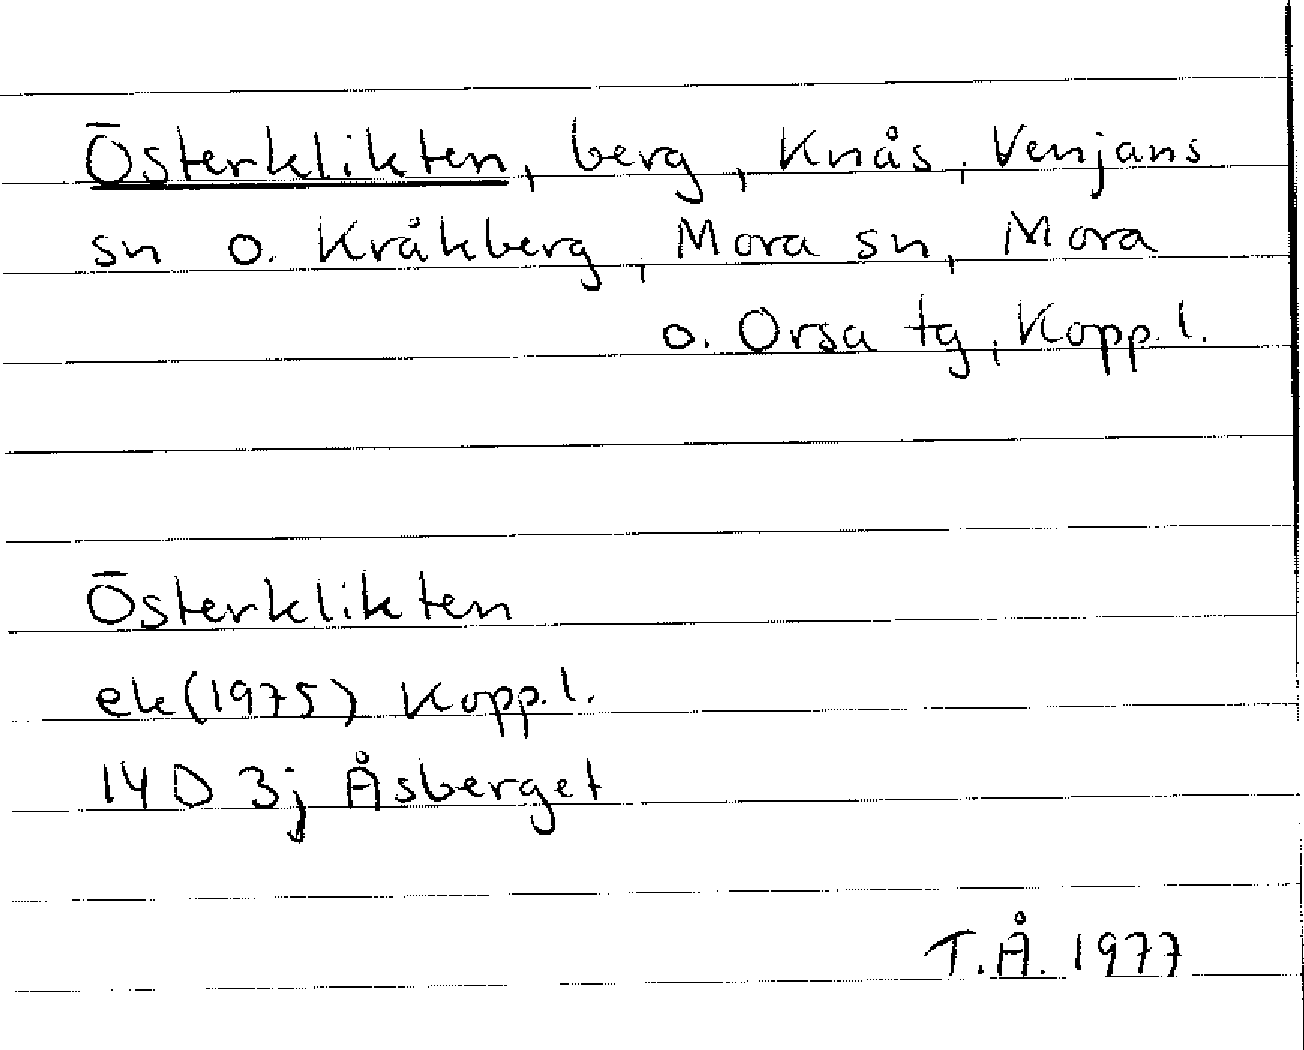 Österklikten, berg, Knås, Venjans
sn o. Kråkberg, Mora sn, Mora
o. Orsa tg, Kopp. l.
Österklikten
ek (1975) Kopp. l.
14 D 3j Åsberget
T.Å. 1977